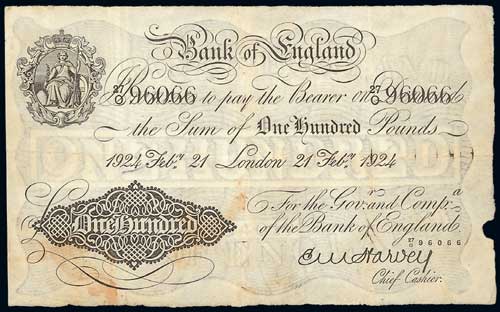 Bank of England
27/O 96066 to pay the Bearer on 27/O 96066
the Sum of One Hundred Pounds
1924 Feb.ʸ 21 London 21 Feb.ʸ 1924
For the Gov.ʳ and Comp.ᵃ
of the Bank of England
One Hundred
27/O 96066
C M Harvey
Chief Cashier.